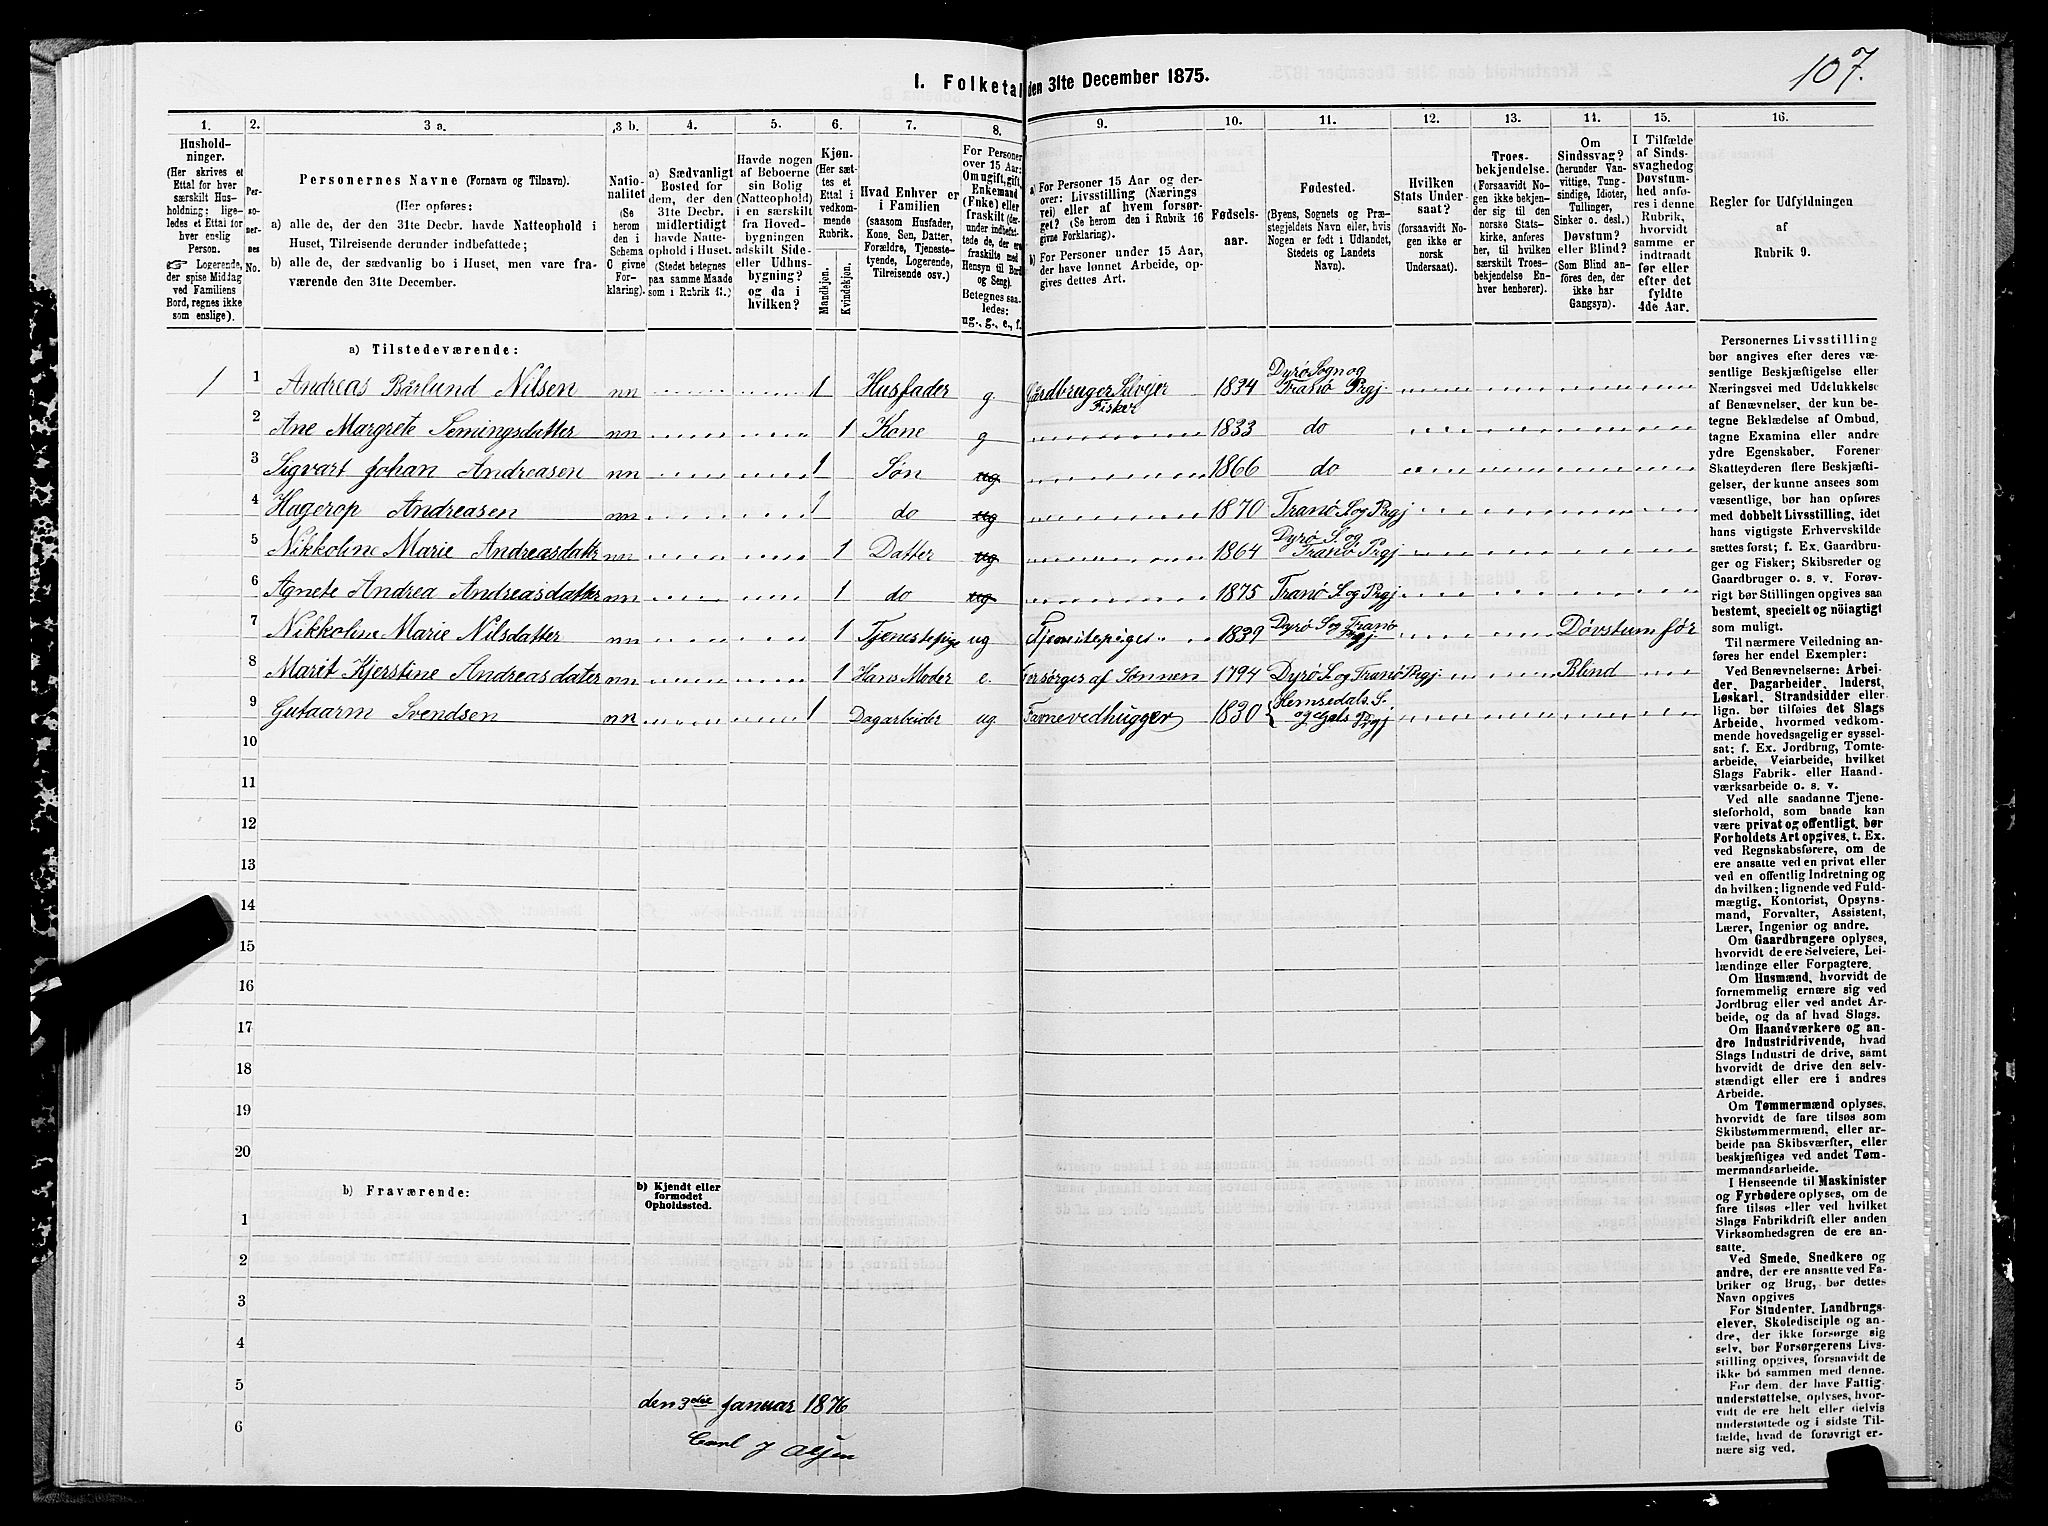 107.
I. Folketal den 31te December 1875.
1. 2. 3 a. 3 b. 4. 5. 6. 7. 8. 9. 10. 11. 12. 13. 11. 15. 16.
Hushold-
ninger.
(Her skrives et
Ettal for hver
særskilt Hus-
holdning; lige-
ledes et Ettal for
hver enslig
Person.
☞ Logerende,
der spise Middag
ved Familiens
Bord, regnes ikke
som enslige).
Per-
so-
ner-
nes
No.
Personernes Navne (Fornavn og Tilnavn).
(Her opføres:
a) alle de, der den 31te Decbr. havde Natteophold i
Huset, Tilreisende derunder indbefattede;
b) alle de, der sædvanlig bo i Huset, men vare fra-
værende den 31te December.
Natio-
nalitet
(Se
herom
den i
Schema
C givne
For-
klaring).
a) Sædvanligt
Bosted for
dem, der den
31te Decbr.
midlertidigt
havde Natte-
ophold i Huset.
(Stedet betegnes
paa samme Maade
som i Rubrik 11.)
Havde nogen
af Beboerne
sin Bolig
(Natteophold)
i en særskilt
fra Hoved-
bygningen
adskilt Side-
eller Udhus-
bygning?
og da i
hvilken?
Kjøn.
(Her sæt-
tes et
Ettal i
vedkom-
mende
Rubrik.
Mandkjøn.
Kvindekjøn.
Hvad Enhver er
i Familien
(saasom Husfader,
Kone, Søn, Datter,
Forældre, Tjeneste-
tyende, Logerende,
Tilreisende osv.)
For Personer
over 15 Aar:
Om ugift, gift,
Enkemand
(Enke) eller
fraskilt (der-
under indbefat-
tede de, der ere
fraskilte med
Hensyn til Bord
og Seng).
Betegnes saa-
ledes:
ug., g., e., f.
a) For Personer 15 Aar og der-
over: Livsstilling (Nærings-
vei) eller af hvem forsør-
get? (Se herom den i Rubrik 16
givne Forklaring).
b) For Personer under 15 Aar,
der have lønnet Arbeide, op-
gives dettes Art.
Fødsels-
aar.
Fødested.
(Byens, Sognets og Præ-
stegjeldets Navn eller, hvis
Nogen er født i Udlandet,
Stedets og Landets
Navn).
Hvilken
Stats Under-
saat?
(forsaavidt No-
gen ikke er
norsk
Undersaat).
Troes-
bekjendelse.
(Forsaavidt No-
gen ikke bekjen-
der sig til den
norske Stats-
kirke, anføres
her, til hvilken
særskilt Troes-
bekjendelse En-
hver henhører).
Om
Sindssvag?
(herunder Van-
vittige, Tung-
sindige, Idioter,
Tullinger,
Sinker o. desl.)
Døvstum?
eller Blind?
(Som Blind an-
føres den, der
ikke har
Gangsyn).
I Tilfælde
af Sinds-
svaghed og
Døvstum-
hed anfø-
res i denne
Rubrik,
hvorvidt
samme er
indtraadt
før eller
efter det
fyldte
4de Aar.
Regler for Udfyldningen
af
Rubrik 9.
a) Tilstedeværende:
1 1 Andreas Bårlund Nilsen nn 1 Husfader g. Gårdbruger Selvejer Fisker 1834 Dyrø Sogn og Tranø Prgj.
2 Ane Margrete Semingsdatter nn 1 Kone g 1833 do
3 Sigvart Johan Andreasen nn 1 Søn ug 1866 do
4 Hagerop Andreasen nn 1 do ug 1870 Tranø S. og Prgj
5 Nikkoline Marie Andreasdattr nn 1 Datter ug 1864 Dyrø S. og Tranø Prgj
6 Agnete Andrea Andreasdatter nn 1 do ug 1875 Tranø S. og Prgj
7 Nikkoline Marie Nilsdatter nn 1 Tjenestepige ug Tjenestepige 1839 Dyrø S. og Tranø Prgj Døvstum før
8 Marit Kjerstine Andreasdater nn 1 Hans Moder e. Forsørges af Sønnen 1794 Dyrø S. og Tranø Prgj Blind
9 Gutaarm Svendsen nn 1 Dagarbeider ug. Favnevedhugger 1830 Hemsedals S. og Gols Prgj
10
11
12
13
14
15
16
17
18
19
20
b) Fraværende:
b) Kjendt eller
formodet
Opholdssted.
1
2
3
4
5
6
den 3die Januar 1876
Carl J Olsen
Personernes Livsstilling
bør angives efter deres væ-
sentlige Beskjæftigelse eller
Næringsvei med Udelukkelse
af Benævnelser, der kun be-
tegne Beklædelse af Ombud,
tagne Examina eller andre
ydre Egenskaber. Forener
Skatteyderen flere Beskjæfti-
gelser, der kunne ansees som
væsentlige, bør han opføres
med dobbelt Livsstilling, idet
hans vigtigste Erhvervskilde
sættes først; f. Ex. Gaardbru-
ger og Fisker; Skibsreder og
Gaardbruger o. s. v. Forøv-
rigt bør Stillingen opgives saa
bestemt, specielt og nöiagtigt
som muligt.
Til nærmere Veiledning an-
føres her endel Exempler:
Ved Benævnelserne: Arbei-
der, Dagarbeider, Inderst,
Løskarl, Strandsidder eller
lign. bør tilføies det Slags
Arbeide, hvormed vedkom-
mende hovedsagelig er syssel-
sat; f. Ex. Jordbrug, Tomte-
arbeide, Veiarbeide, hvilket
Slags Fabrik- eller Haand-
værksarbeide o. s. v.
Ved alle saadanne Tjene-
steforhold, som baade kan
være privat og offentligt, bør
Forholdets Art opgives, t. Ex.
ved Regnskabsførere, om de
ere ansatte ved en privat eller
ved en offentlig Indretning og
da hvilken; lignende ved Fuld-
mægtig, Kontorist, Opsyns-
mand, Forvalter, Assistent,
Lærer, Ingeniør og andre.
Om Gaardbrugere oplyses,
hvorvidt de ere Selveiere, Lei-
lændinge eller Forpagtere.
Om Husmænd, hvorvidt de
fornemmelig ernære sig ved
Jordbrug eller ved andet Ar-
beide, og da af hvad Slags.
Om Haandværkere og an-
dre Industridrivende, hvad
Slags Industri de drive, samt
hvorvidt de drive den selv-
stændigt eller ere i andres
Arbeide.
Om Tømmermænd oplyses,
hvorvidt de fare tilsøs som
Skibstømmermænd, eller ar-
beide paa Skibsværfter, eller
beskjæftiges ved andet Tøm-
mermandsarbeide.
I Henseende til Maskinister
og Fyrbødere oplyses, om de
fare tilsøs eller ved hvilket
Slags Fabrikdrift eller anden
Virksomhedsgren de ere an-
satte.
Ved Smede, Snedkere og
andre, der ere ansatte ved Fa-
briker og Brug, bør dettes
Navn opgives
For Studenter, Landbrugs-
elever, Skoledisciple og an-
dre, der ikke forsørge sig
selv, bør Forsørgerens Livs-
stilling opgives, forsaavidt de
ikke bo sammen med denne.
For dem, der have Fattig-
understøttelse, oplyses, hvor-
vidt de ere helt eller delvis
understøttede og i sidste Til-
fælde, hvad de forøvrigt er-
nære sig ved.